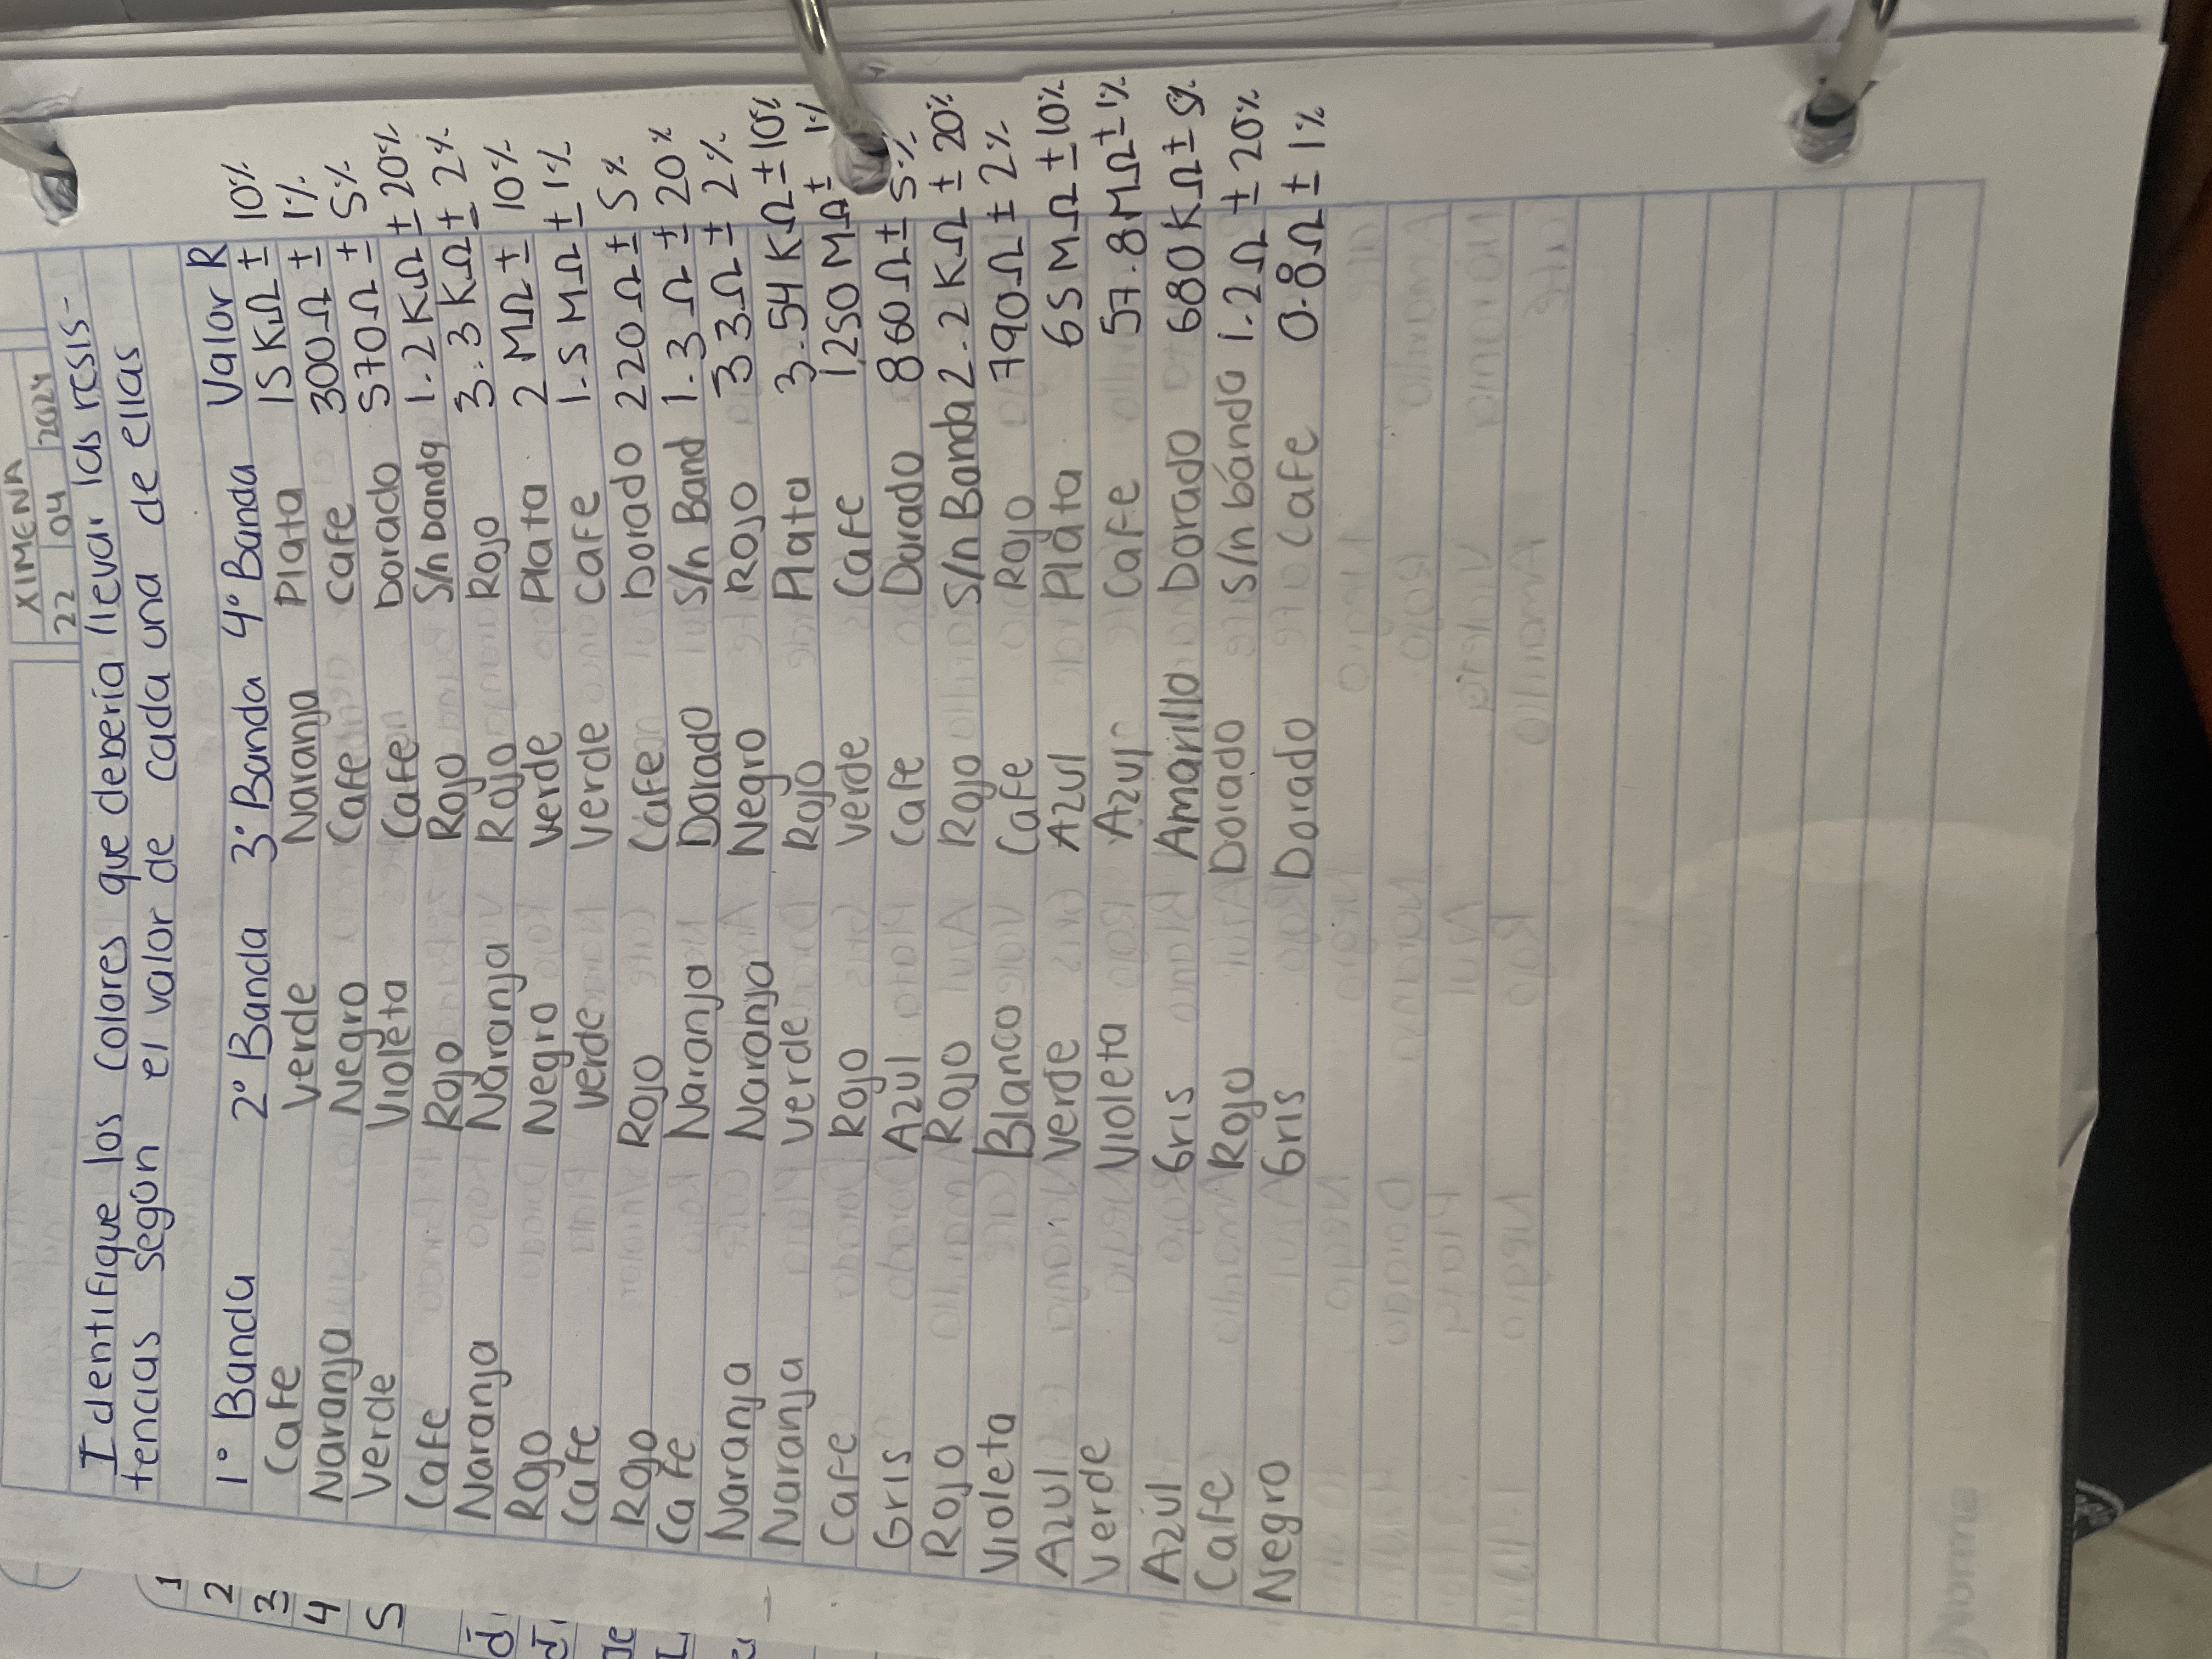 XIMENA
22 04 2024
Identifique los colores que debería llevar las resis-
tencias según el valor de cada una de ellas
1° Banda 2° Banda 3° Banda 4° Banda Valor R
Cafe Verde Naranja Plata 15 KΩ ± 10%
Naranja Negro Cafe Cafe 300Ω ± 1%
Verde Violeta Cafe Dorado 570Ω ± 5%
Cafe Rojo Rojo S/n banda 1.2 KΩ ± 20%
Naranja Naranja Rojo Rojo 3.3 KΩ ± 2%
Rojo Negro Verde Plata 2 MΩ ± 10%
Cafe Verde Verde Cafe 1.5 MΩ ± 1%
Rojo Rojo Cafe Dorado 220Ω ± 5%
Cafe Naranja Dorado S/n Band 1.3Ω ± 20%
Naranja Naranja Negro Rojo 33Ω ± 2%
Naranja Verde Rojo Plata 3.54 KΩ ± 10%
Cafe Rojo Verde Cafe 1250 MΩ ± 1%
Gris Azul Cafe Dorado 860Ω ± 5%
Rojo Rojo Rojo S/n Banda 2.2 KΩ ± 20%
Violeta Blanco Cafe Rojo 790Ω ± 2%
Azul Verde Azul Plata 65 MΩ ± 10%
Verde Violeta Azul Cafe 57.8 MΩ ± 1%
Azul Gris Amarillo Dorado 680 KΩ ± 5%
Cafe Rojo Dorado S/n banda 1.2Ω ± 20%
Negro Gris Dorado Cafe 0.8Ω ± 1%
1
2
3
4
5
Norma